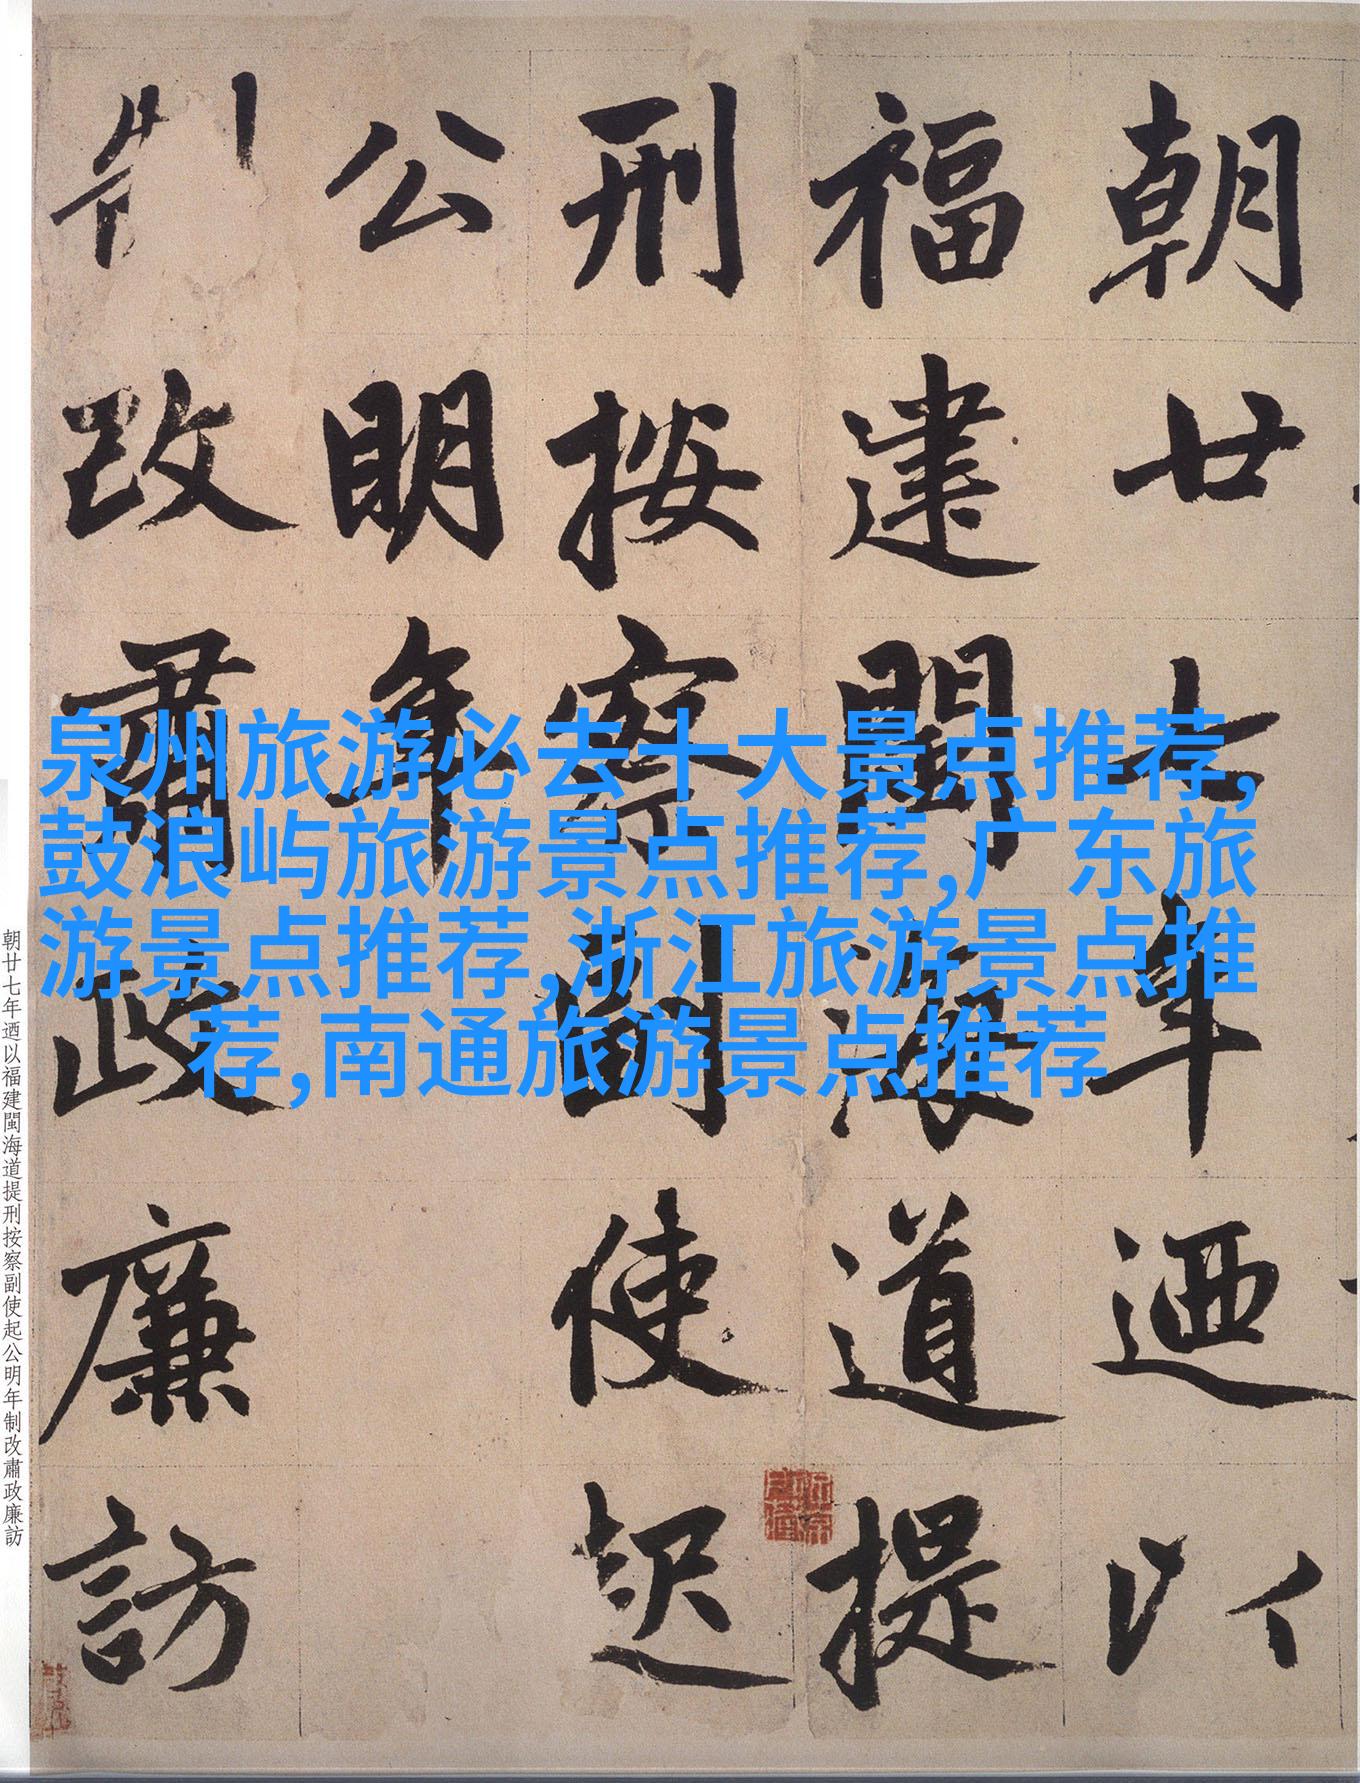 朝廿七年迺以
福建閩海道提
刑按察副使起
公明年
制改肅政廉訪
朝廿七年迺以福建閩海道提刑按察副使起公明年制改肅政廉訪
泉州旅游必去十大景点推荐,
鼓浪屿旅游景点推荐,广东旅
游景点推荐,浙江旅游景点推
荐,南通旅游景点推荐